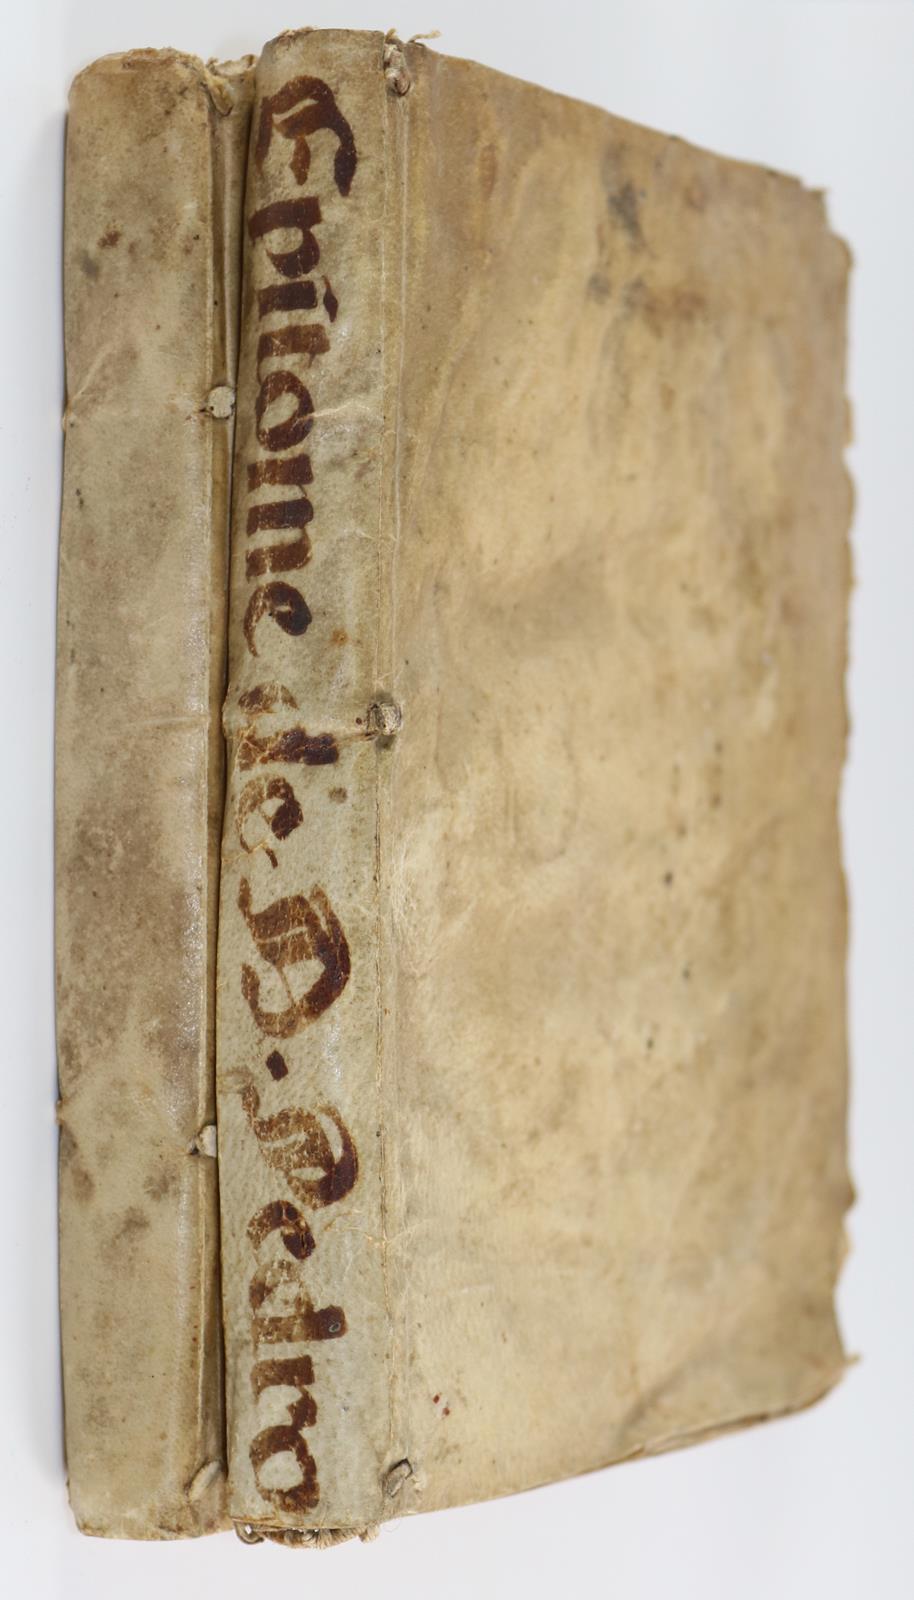 Epitome de D. Pedro